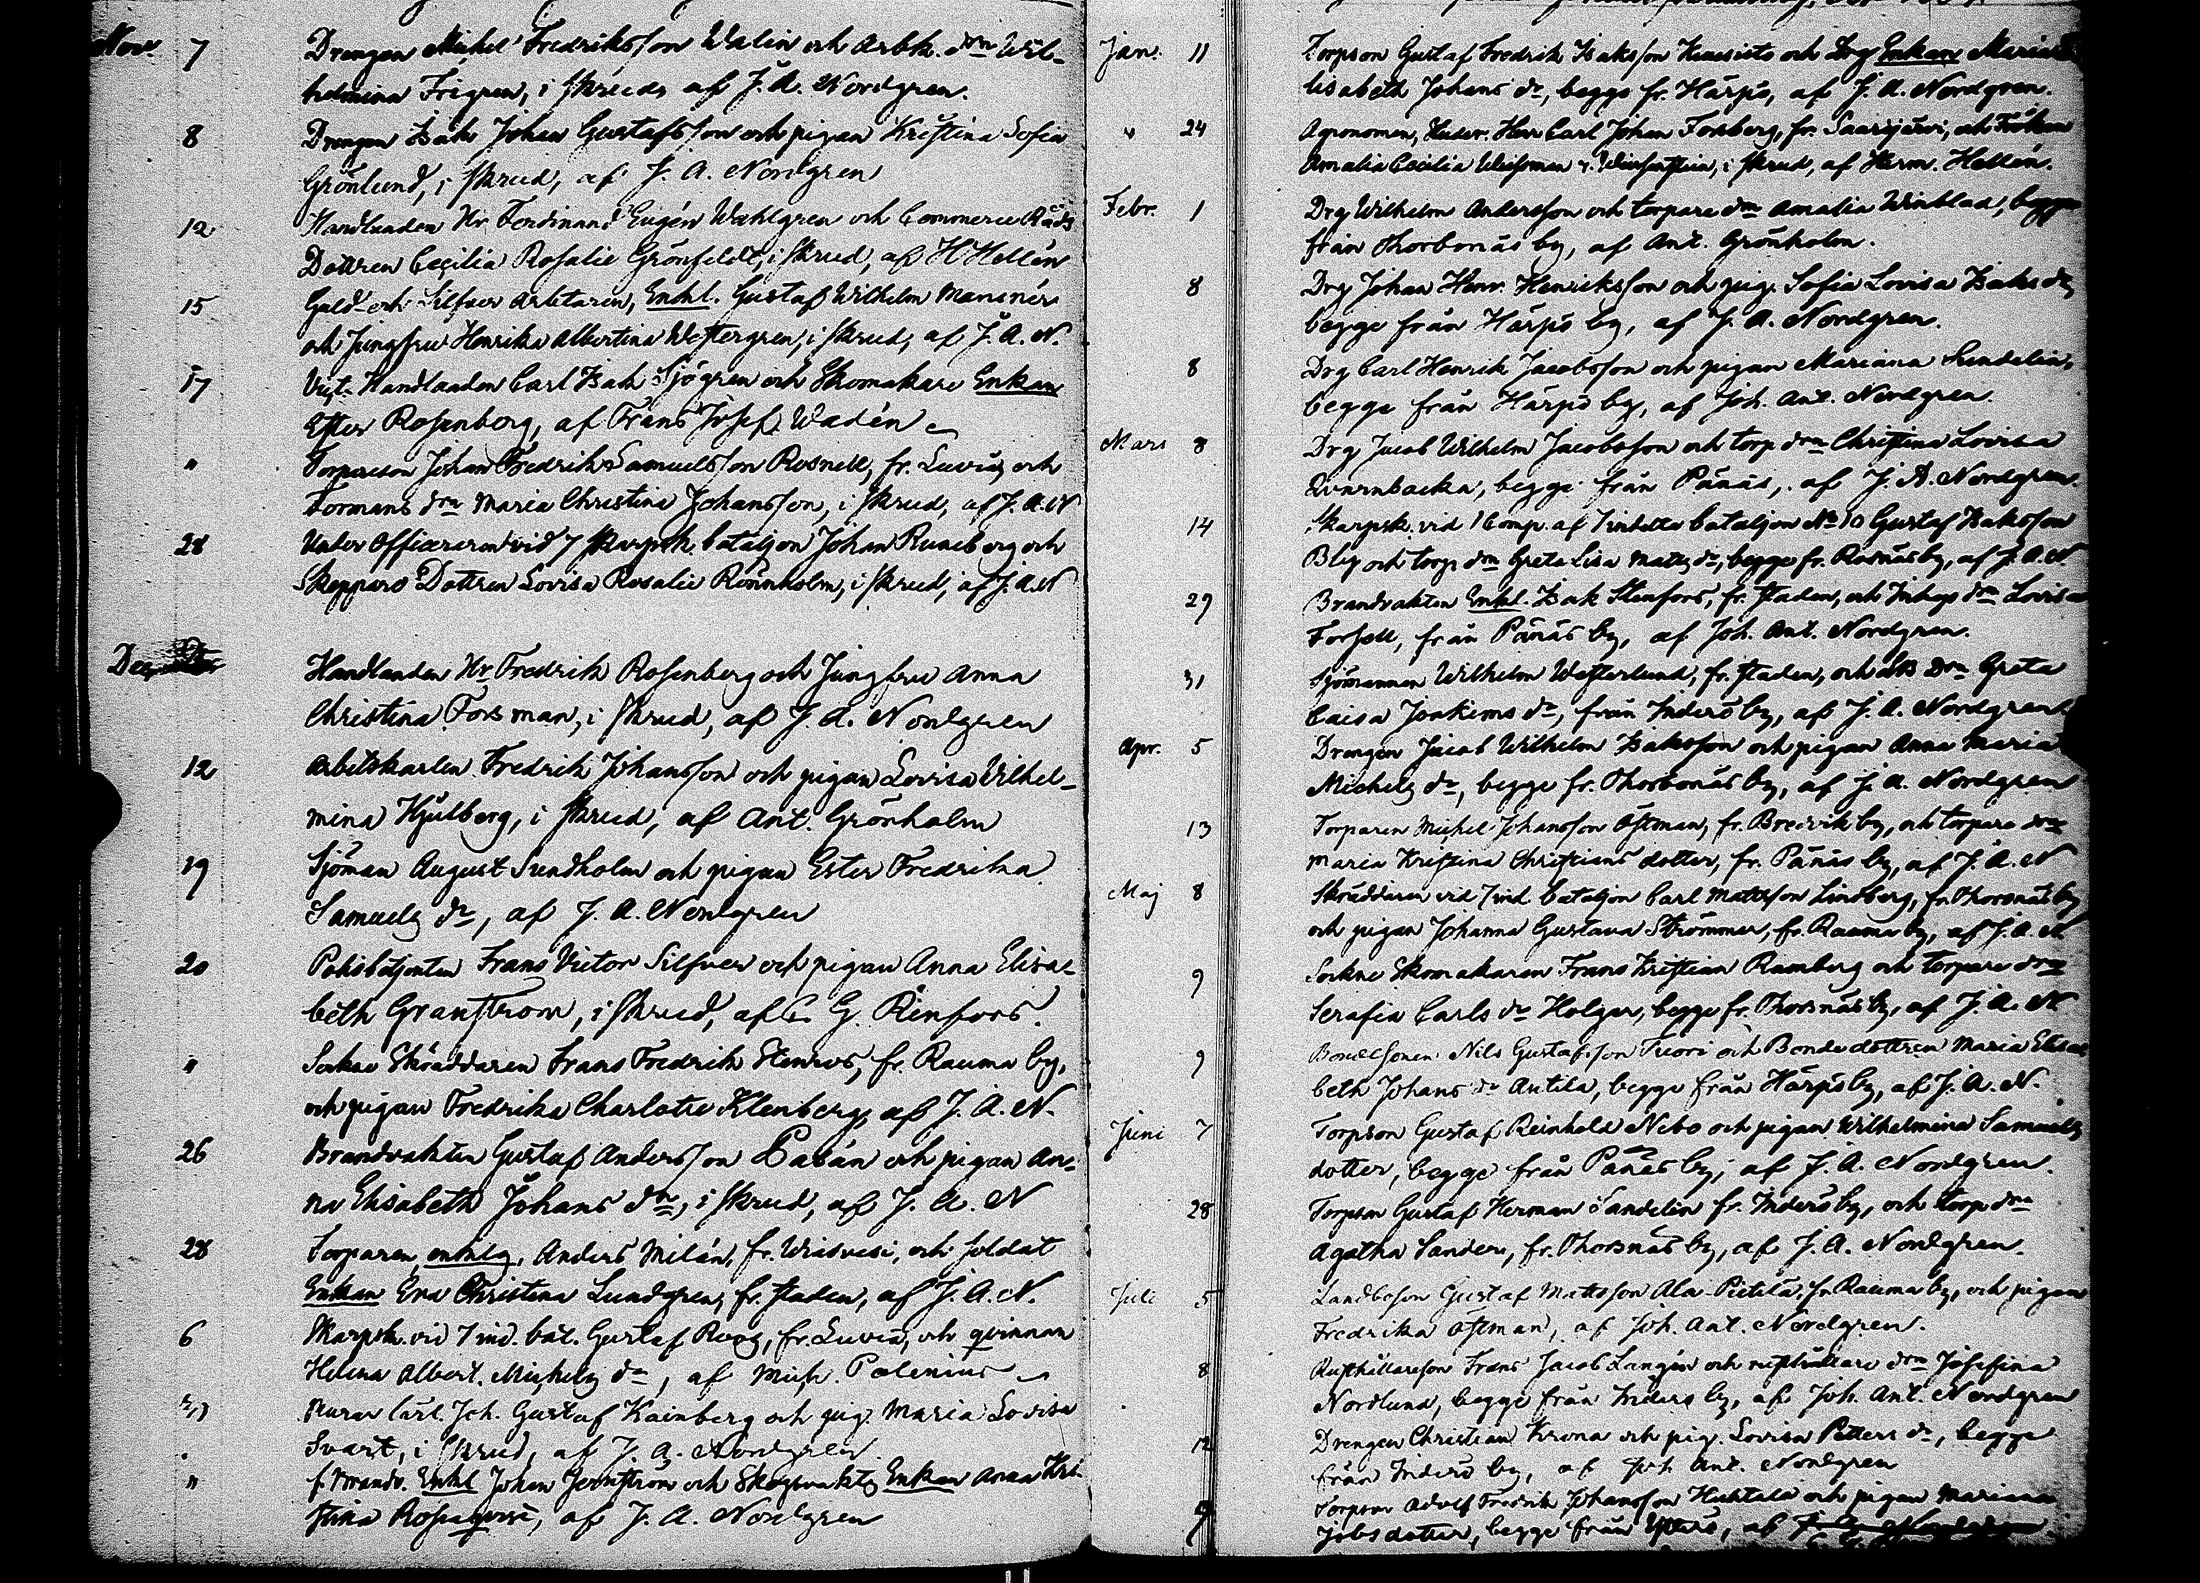 Nov. 7 Drengen Michel Fredriksson Walin och Arbk. drn Wil-
helmina Frigren, i skrud, af J. A. Nordgren.
8 Drengen Isak Johan Gustafsson och pigan Kristina Sofia
Grönlund, i skrud, af J. A. Nordgren
12 Handlanden Hr Ferdinand Eugén Wahlgren och Commerce Råds
Dottren Cecilia Rosalie Grönfeldt, i skrud, af H Hellén
15 Guld- och Silfver arbetaren, Enkl. Gustaf Wilhelm
och Jungfru Henrika Albertina Westergren, i skrud, af J. A. N.
17 Vict. Handlanden Carl Isak Sjögren och Skomakare Enkan
Ester Rosenberg, af Frans Josef Wadén
" Torparson Johan Fredrik Samuelsson Rosnell, fr. Luvia, och
Formans drn Maria Christina Johansson, i skrud, af J. A. N
28 Under Officeren vid 7 skarpsk. bataljon Johan Runeberg och
Skeppare Dottren Lovisa Rosalie Rönnholm, i skrud, af J. A. N
Dec.
Handlanden Hr Fredrik Rosenberg och Jungfru Anna
Christina Forsman, i skrud, af J. A. Nordgren
12 Arbetskarlen Fredrik Johansson och pigan Lovisa Wilhel-
mina Hjulberg, i skrud, af Ant. Grönholm
19 Sjöman August Sundholm och pigan Ester Fredrika
Samuels dr, af J. A. Nordgren
20 Frans Victor Silfver och pigan Anna Elisa-
beth Granström, i skrud, af C. G. Renfors.
" Sockne Skräddaren Frans Fredrik Stenros, fr. Rauma by,
och pigan Fredrika Charlotta Klenberg, af J. A. N.
26 Brandvakten Gustaf Andersson och pigan An-
na Elisabeth Johans dr, i skrud, af J. A. N
28 Torparen, enklg, Anders Milén, fr. Wiasvesi, och soldat
Enkan Eva Christina Lundgren, fr. staden, af J. A. N.
6 Skarpsk. vid 7 ind. bat. Gustaf Roos, fr. Luvia, och qvinnan
Helena Albert. Michels dr, af Mich. Polenius
Murar lärl. Joh. Gustaf Kainberg och pig. Maria Lovisa
Svart, i skrud, af J. A. Nordgren
" f. Brandv. Enkl Johan och Skogvakts Enkan Anna Kri-
stina Rosenqvist, af J. A. Nordgren
Jan. 11 Torpson Gustaf Fredrik Isaksson och Drg Enkan Maria
lisabeth Johans dr, begge fr. Härpö, af J. A. Nordgren.
" 24 Agronomen, Herr Carl Johan Forsberg, fr. Saarijärvi, och Fröken
Amalia Cecilia i skrud, af Herm. Hellén.
Febr. 1 Drg Wilhelm Andersson och torpare drn Amalia Winblad, begge
från Thorbonäs by, af Ant. Grönholm.
8 Drg Johan Henr. Henriksson och pig. Sofia Lovisa Isaks dr,
begge från Härpö by, af J. A. Nordgren.
8 Drg Carl Henrik Jacobsson och pigan Mariana Sundelin,
begge från Härpö by, af Joh. Ant. Nordgren
Mars 8 Drg Jacob Wilhelm Jacobsson och torp drn Christina Lovisa
Qvarnbacka, begge från Pånäs, af J. A. Nordgren.
14 Skarpsk. vid 1 Comp. af 7 indelta bataljon No 10 Gustaf Isaksson
Blix och torp drn Greta Lisa Matts dr, begge fr. Rosnäs by, af J. A. N.
29 Brandvakten Enkl. Isak Stenfors, fr. staden, och Inhys drn Lovisa
Forsell, från Pånäs by, af Joh. Ant. Nordgren.
31 Sjömannen Wilhelm Westerlund, fr. staden, och drn Greta
Caisa Joakims dr, från Inderö by, af J. A. Nordgren
Apr. 5 Drengen Jacob Wilhelm Isaksson och pigan Anna Maria
Michels dr, begge fr. Thorbonäs by, af J. A. Nordgren
13 Torparen Michel Johansson Östman, fr. Bredvik by, och torpare drn
Maria Kristina Christians dotter, fr. Pånäs by, af J. A. N
Maj 8 Skräddaren vid 7 ind bataljon Carl Mattsson Lindberg, fr. Thorsnäs by
och pigan Johanna Gustava Strömmer, fr. Rauma by, af J. A. N
9 Sockne Skomakaren Frans Kristian Ramberg och torpare drn
Serafia Carls dr Holger, begge fr. Thorsnäs by, af J. A. N
9 Bondesonen Nils Gustafsson Tuori och Bondedottren Maria Elisa-
beth Johans dr Antila, begge från Härpö by, af J. A. N.
Juni 7 Torpson Gustaf Reinhold Nebo och pigan Wilhelmina Samuels
dotter, begge från Pånäs by, af J. A. Nordgren.
28 Torpson Gustaf Herman Sandelin fr. Inderö by, och torp drn
Agatha Sander, fr. Thorsnäs by, af J. A. Nordgren.
Juli 5 Landboson Gustaf Mattsson Ala-Pietilä, fr. Rauma by, och pigan
Fredrika Östman, af Joh. Ant. Nordgren.
8 Rusthållareson Frans Jacob Langén och rusthållare drn Josefina
Nordlund, begge från Inderö by, af Joh. Ant. Nordgren
12 Drengen Christian Krona och pig. Lovisa Petters dr, begge
från Inderö by, af Joh. Ant. Nordgren
Torpson Adolf Fredrik Johansson Huhtala och pigan Mariana
Jobs dotter, begge från Yttерö, af